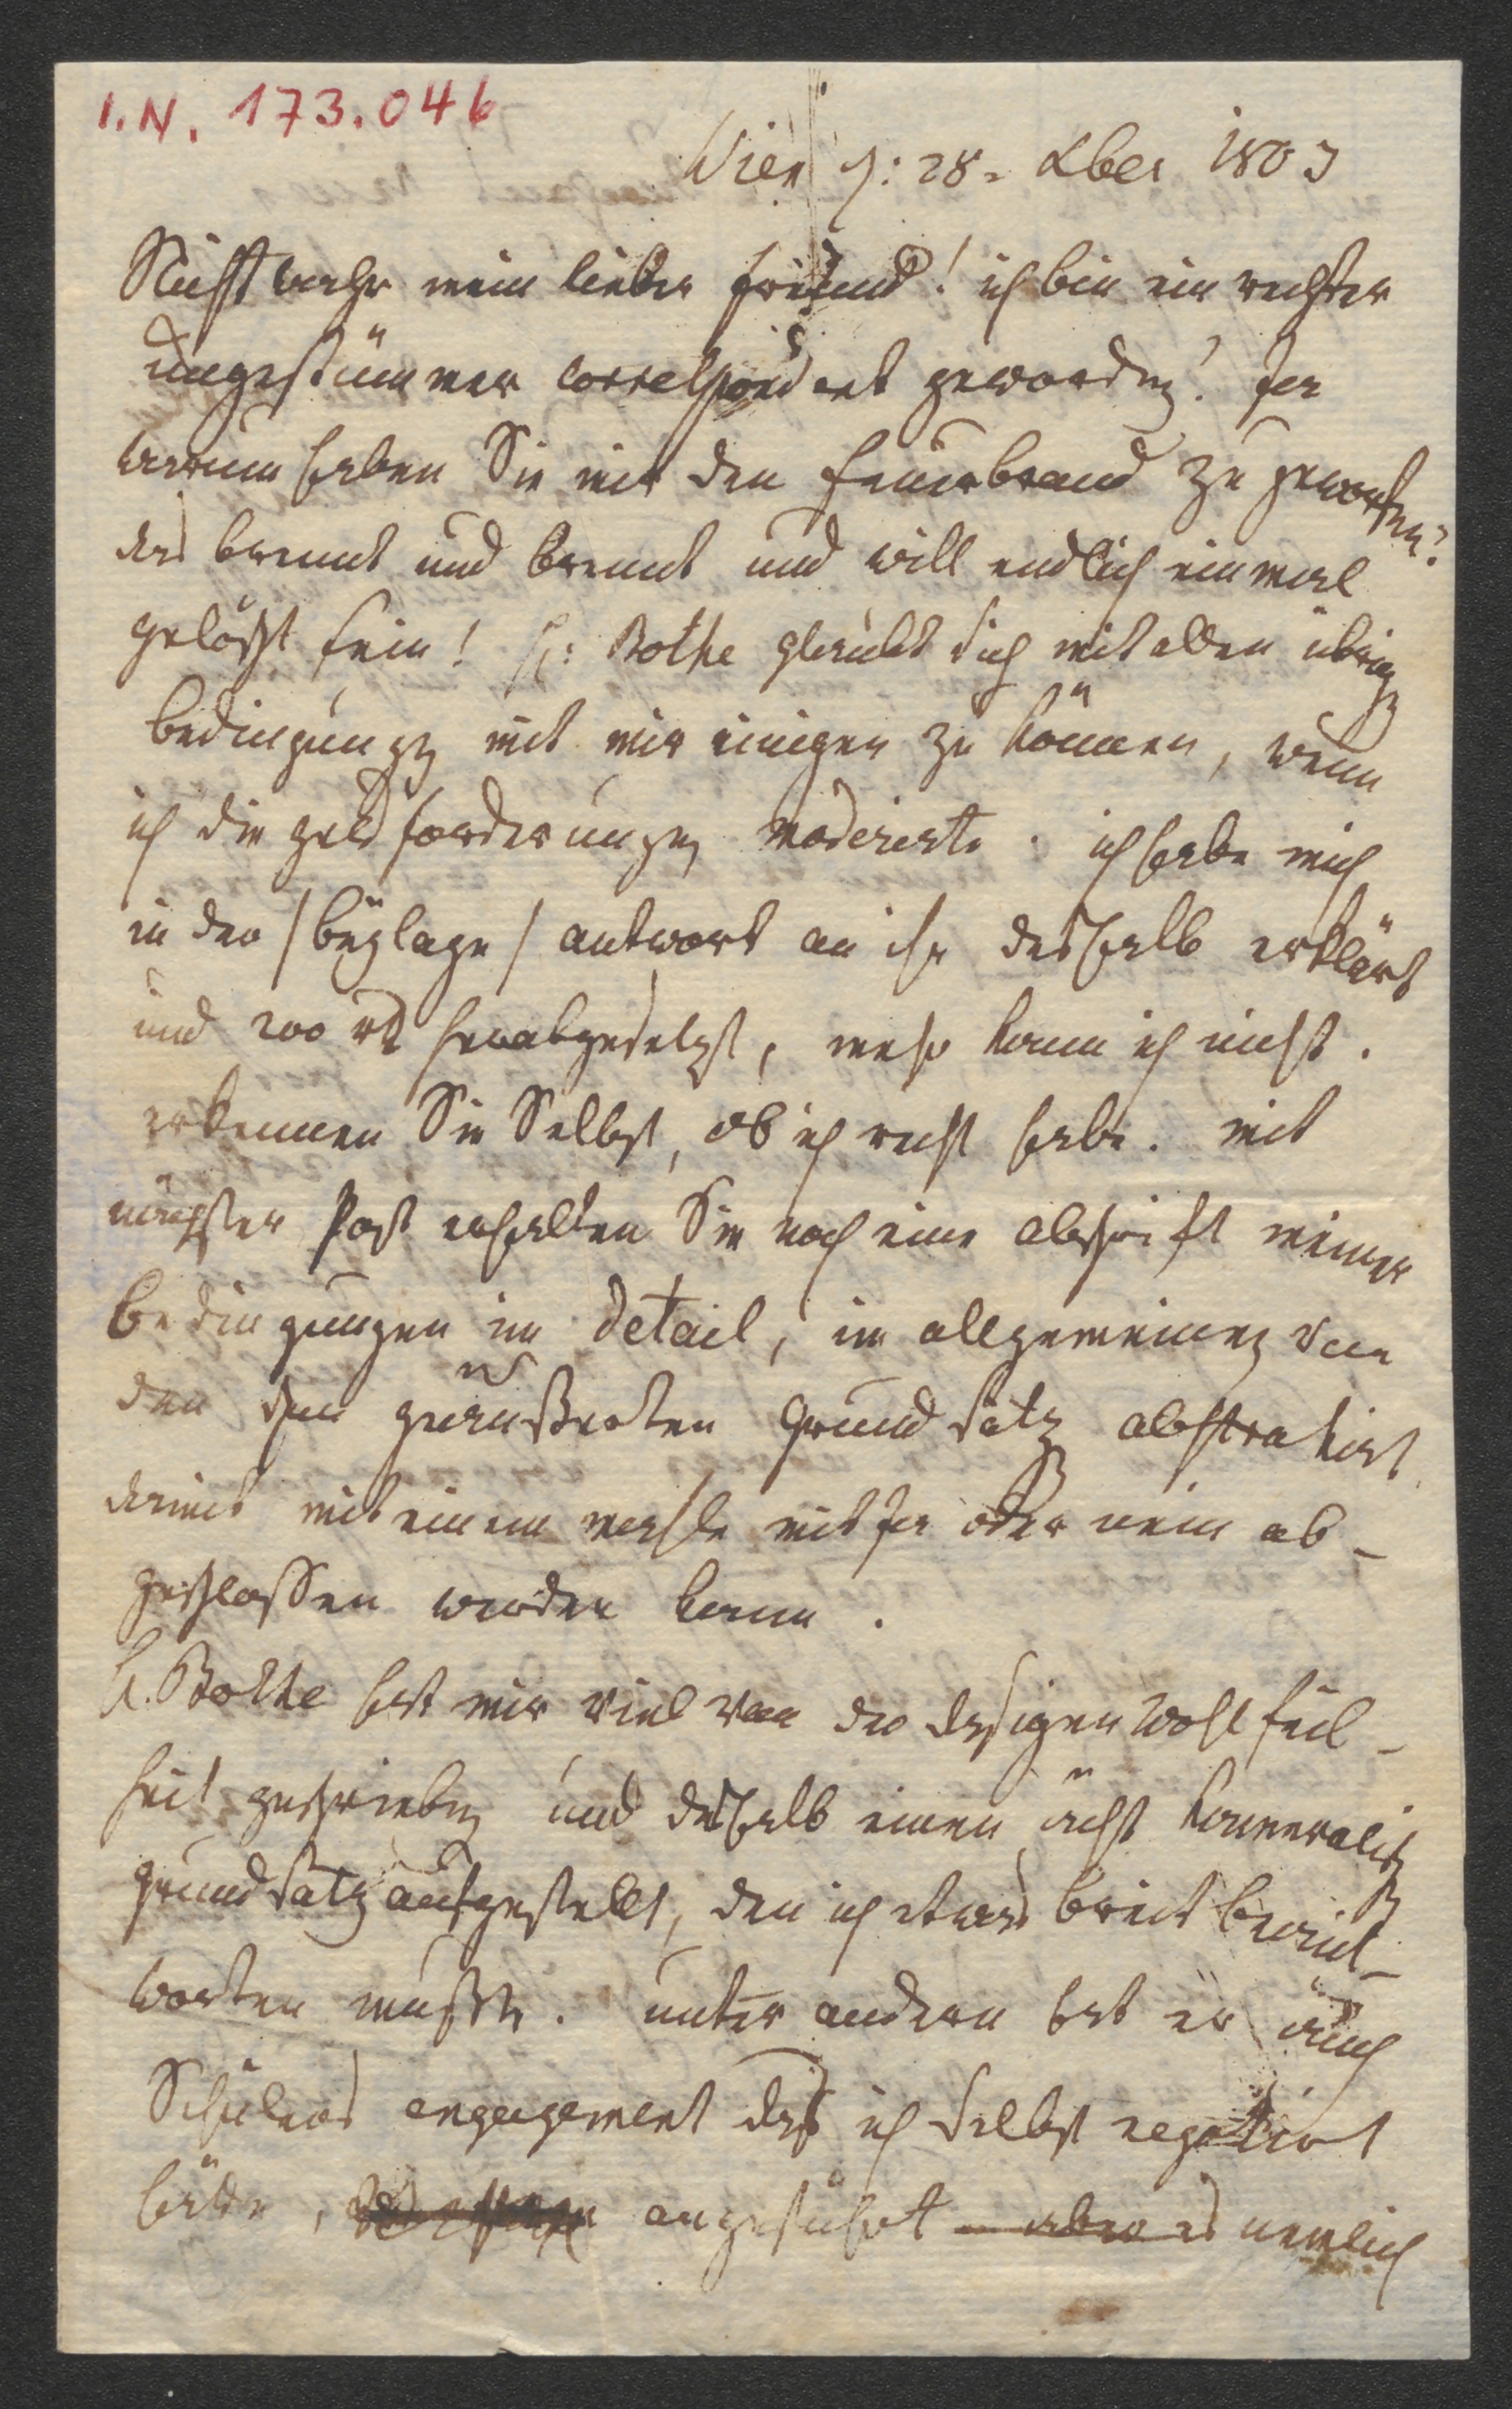 I.N. 173.046
Wien d: 28. Xber 1803
Nicht wahr mein lieber Freund! ich bin ein rechter
ungestümmer Correspondent geworden? ja
warum haben Sie mir den Feuerbrand zu geworfen?
das brennt und brennt und will endlich einmal
gelöscht sein! H: Bothe glaubt sich mit allen übrigen
bedingungen mit mir einigen zu können, wenn
ich die geldforderungen moderierte. ich habe mich
in der /beylage/ antwort an ihn deshalb erklärt
und 200 rt herabgesetzt, mehr kann ich nicht.
erkennen Sie Selbst, ob ich recht habe. mit
nächster Post erhalten Sie noch eine abschrift meiner
bedingungen im detail, im allgemeinen von
den ihm geäußerten Grundsätzen abstrahirt
damit mit einem mahle mit ja oder nein ab-
geschlossen werden kann.
H. Bothe hat mir viel von der dasigen Wohlfeil-
heit geschrieben und deshalb einen ächt kameralisch
grundsatz aufgestellt, den ich etwas breit beant-
worten mußte. unter andern hat er auch
Schülers engagement daß ich selbst negotirt
hätte, angeführt aber es nemlich